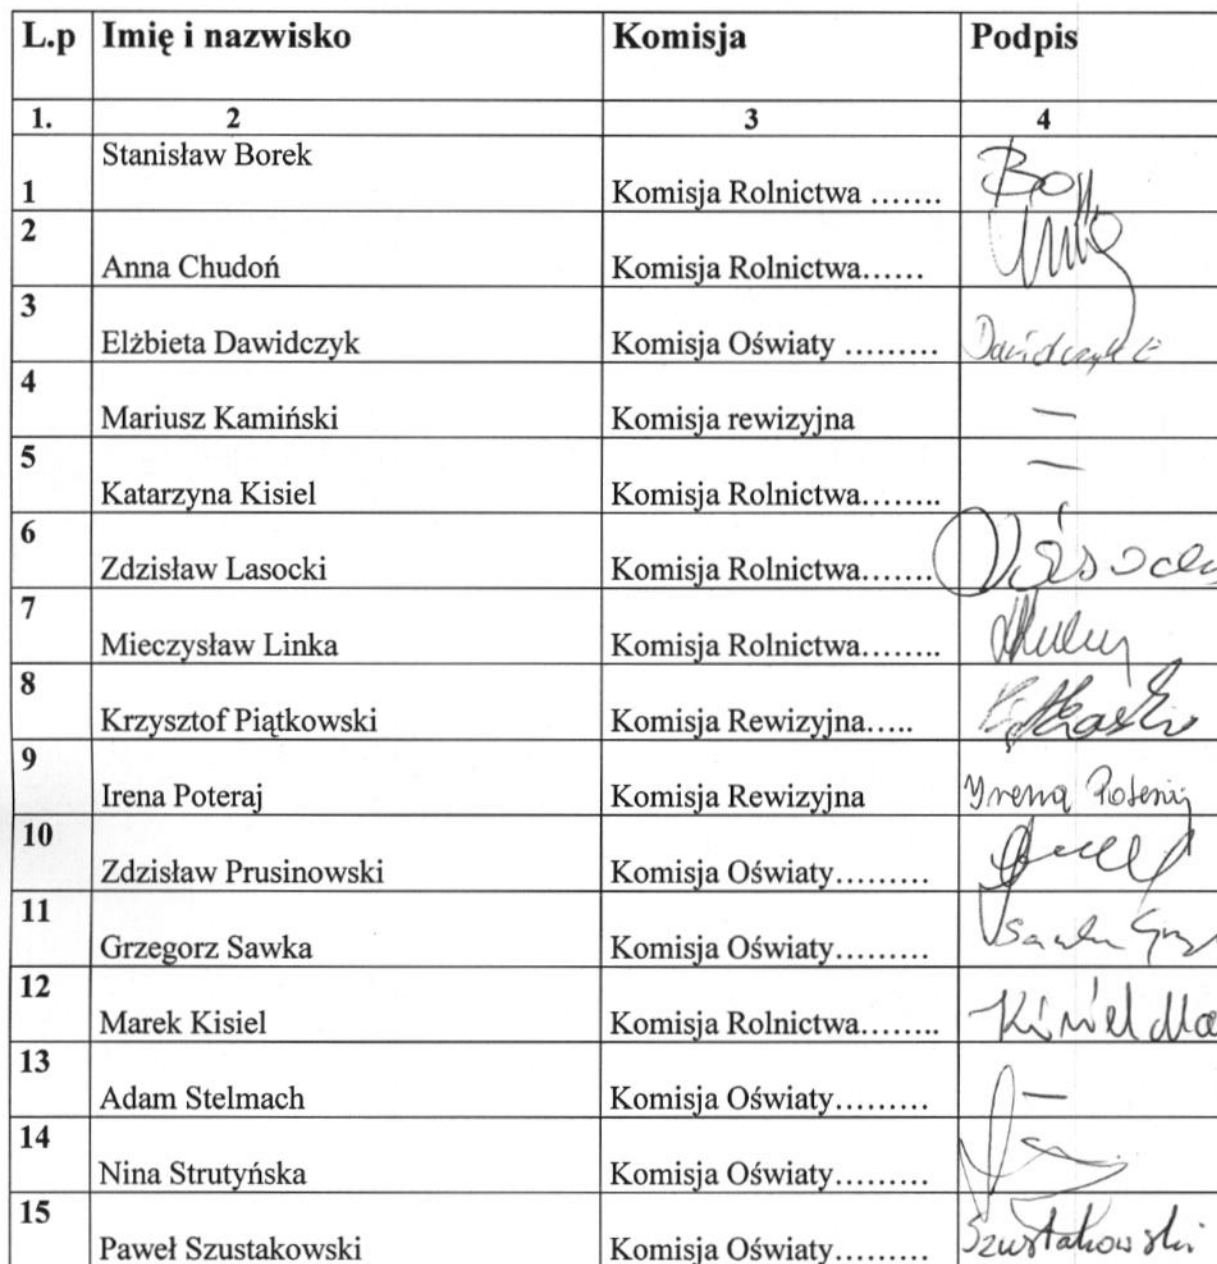 L.p Imię i nazwisko Komisja Podpis
1. 2 3 4
Stanisław Borek
1 Komisja Rolnictwa .......
2
Anna Chudoń Komisja Rolnictwa......
3
Elżbieta Dawidczyk Komisja Oświaty ......... Dawidczyk E
4
Mariusz Kamiński Komisja rewizyjna —
5
Katarzyna Kisiel Komisja Rolnictwa........ —
6
Zdzisław Lasocki Komisja Rolnictwa.......
7
Mieczysław Linka Komisja Rolnictwa........
8
Krzysztof Piątkowski Komisja Rewizyjna.....
9
Irena Poteraj Komisja Rewizyjna Irena Poteraj
10
Zdzisław Prusinowski Komisja Oświaty.........
11
Grzegorz Sawka Komisja Oświaty......... Sawka Grz
12
Marek Kisiel Komisja Rolnictwa........ Kisiel Ma
13
Adam Stelmach Komisja Oświaty......... —
14
Nina Strutyńska Komisja Oświaty.........
15
Paweł Szustakowski Komisja Oświaty......... Szustakowski